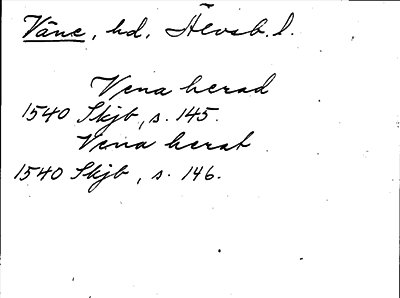 Väne, hd, Älvsb. l.
Vena herad
1540 Skjb, s. 145.
Vena herat
1540 Skjb, s. 146.